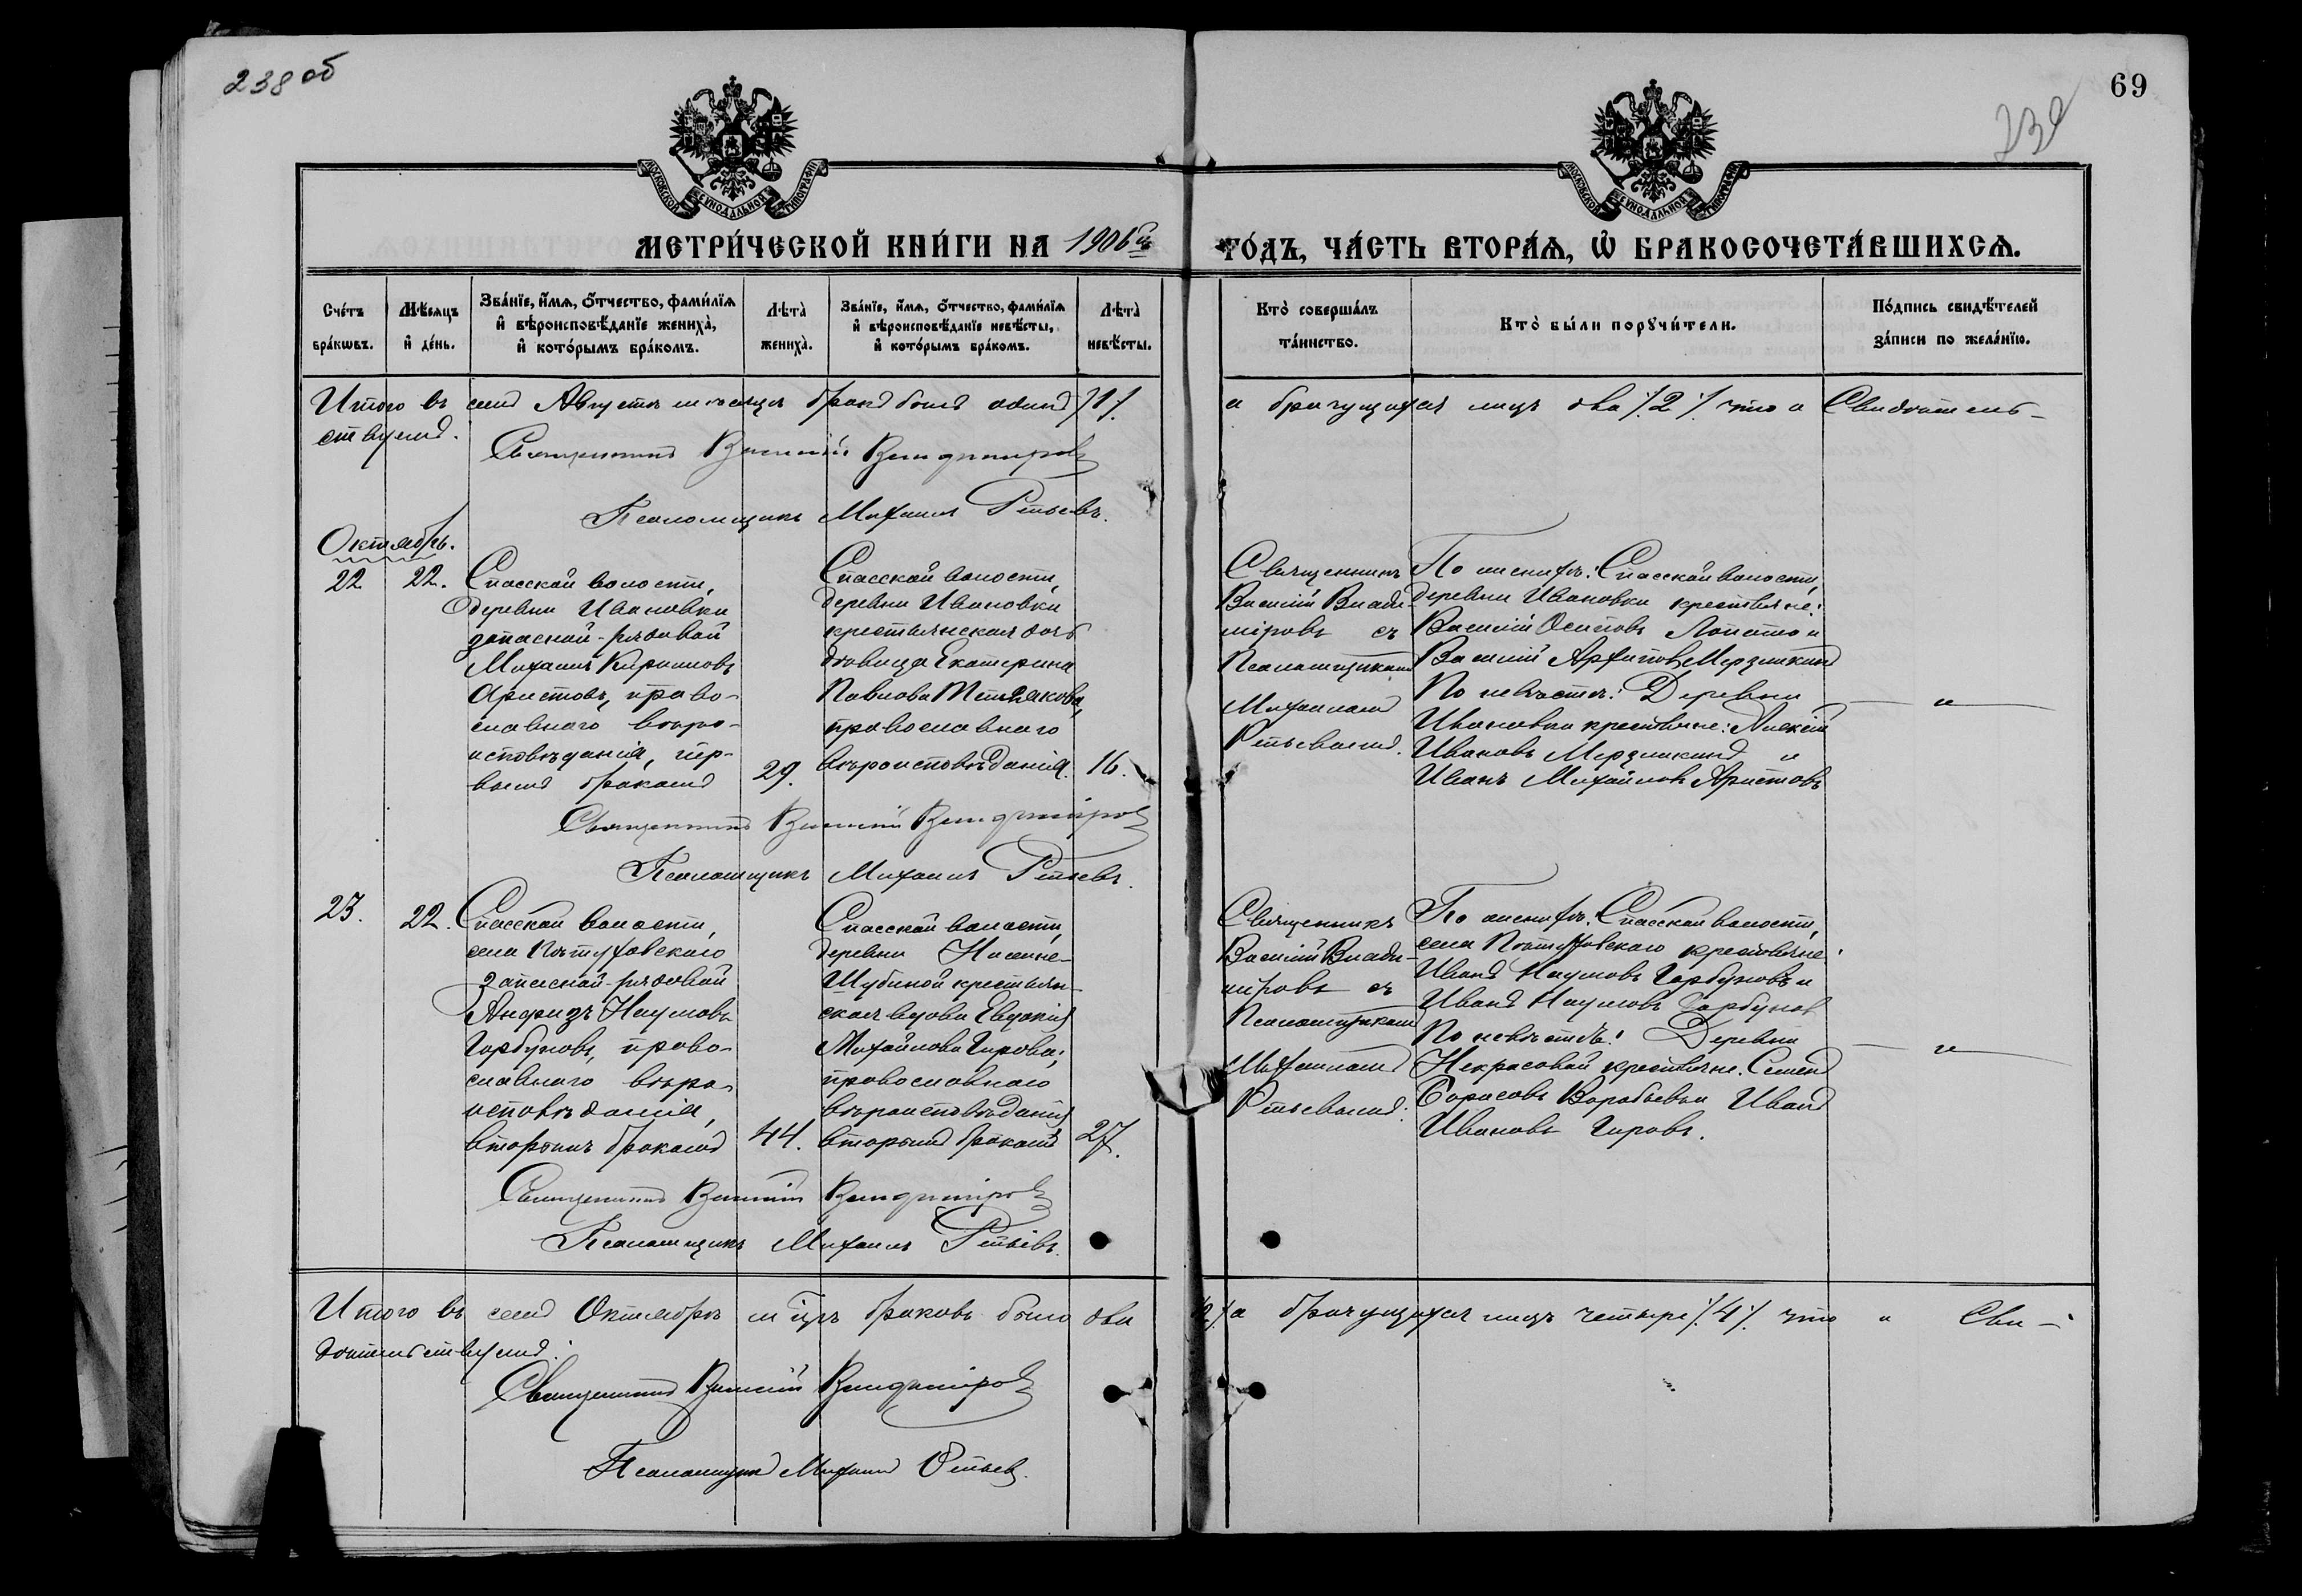 238 об
69
239
МОСКОВСКОЙ СѴНОДАЛЬНОЙ ТИПОГРАФІИ
МОСКОВСКОЙ СѴНОДАЛЬНОЙ ТИПОГРАФІИ
МЕТРИ́ЧЕСКОЙ КНИ́ГИ НА 1906й ГО́ДЪ, ЧА́СТЬ ВТОРА́Ѧ, Ѡ҆ БРАКОСОЧЕТА́ВШИХСѦ.
Сче́тъ бра́кѡвъ.
Мѣ́сѧцъ и҆ де́нь.
Зва́нїе, и҆́мѧ, ѻ҆́тчество, фами́лїѧ и҆ вѣроисповѣ́данїе жениха̀, и҆ кото́рымъ бра́комъ.
Лѣта̀ жениха̀.
Зва́нїе, и҆́мѧ, ѻ҆́тчество, фами́лїѧ и҆ вѣроисповѣ́данїе невѣ́сты, и҆ кото́рымъ бра́комъ.
Лѣта̀ невѣ́сты.
Кто̀ соверша́лъ та́инство.
Кто̀ бы́ли порꙋчи́тели.
По́дпись свидѣ́телей за́писи по жела́нїю.
Итого въ семъ Августѣ мѣсяцѣ бракъ былъ одинъ /1/. а брачущихся лицъ два /.2./ что и Свидѣтель-
ствуемъ.
Священникъ Василій Владиміровъ
Псаломщикъ Михаилъ Рѣпьевъ.
Октябрь.
22
22.
Спасской волости,
деревни Ивановки
запасной-рядовой
Михаилъ Кириловъ
Аристовъ, право-
славнаго вѣро-
исповѣданія, пер-
вымъ бракомъ
29.
Спасской волости,
деревни Ивановки
крестьянская дочь
дѣвица Екатерина
Павлова
православнаго
вѣроисповѣданія.
16.
Священникъ
Василій Влади-
міровъ съ
Псаломщикомъ
Михаиломъ
Рѣпьевымъ.
По женихѣ: Спасской волости,
деревни Ивановки крестьяне:
Василій Осиповъ и
Василій Архиповъ Мерзликинъ
По невѣстѣ: Деревни
Ивановки крестьяне: Алексѣй
Ивановъ Мерзликинъ и
Иванъ Михайловъ Аристовъ
— „ —
Священникъ Василій Владиміровъ
Псаломщикъ Михаилъ Рѣпьевъ.
23.
22.
Спасской волости,
села Пѣтуховскаго
запасной-рядовой
Андрей Наумовъ
Горбуновъ, право-
славнаго вѣро-
исповѣданія,
вторымъ бракомъ
44.
Спасской волости,
деревни
Шубиной крестьян-
ская вдова Евдокія
Михайлова Гирова,
православнаго
вѣроисповѣданія
вторымъ бракомъ
27.
Священникъ
Василій Влади-
міровъ съ
Псаломщикомъ
Михаиломъ
Рѣпьевымъ.
По женихѣ: Спасской волости,
села Пѣтуховскаго крестьяне:
Иванъ Наумовъ Горбуновъ и
Иванъ Наумовъ Горбуновъ
По невѣстѣ: Деревни
Некрасовой крестьяне: Семенъ
Борисовъ Воробьевъ и Иванъ
Ивановъ Гировъ.
— „ —
Священникъ Василій Владиміровъ
Псаломщикъ Михаилъ Рѣпьевъ.
Итого въ семъ Октябрѣ м-цѣ браковъ было два /2/. а брачущихся лицъ четыре /.4./. что и Сви-
дѣтельствуемъ:
Священникъ Василій Владиміровъ
Псаломщикъ Михаилъ Рѣпьевъ.